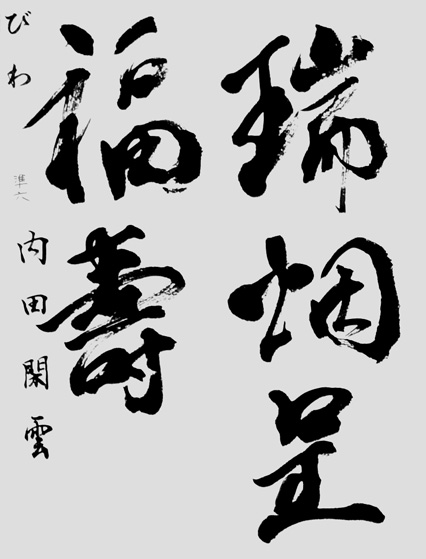 瑞烟呈
福壽
びわ
準六
内田閑雲